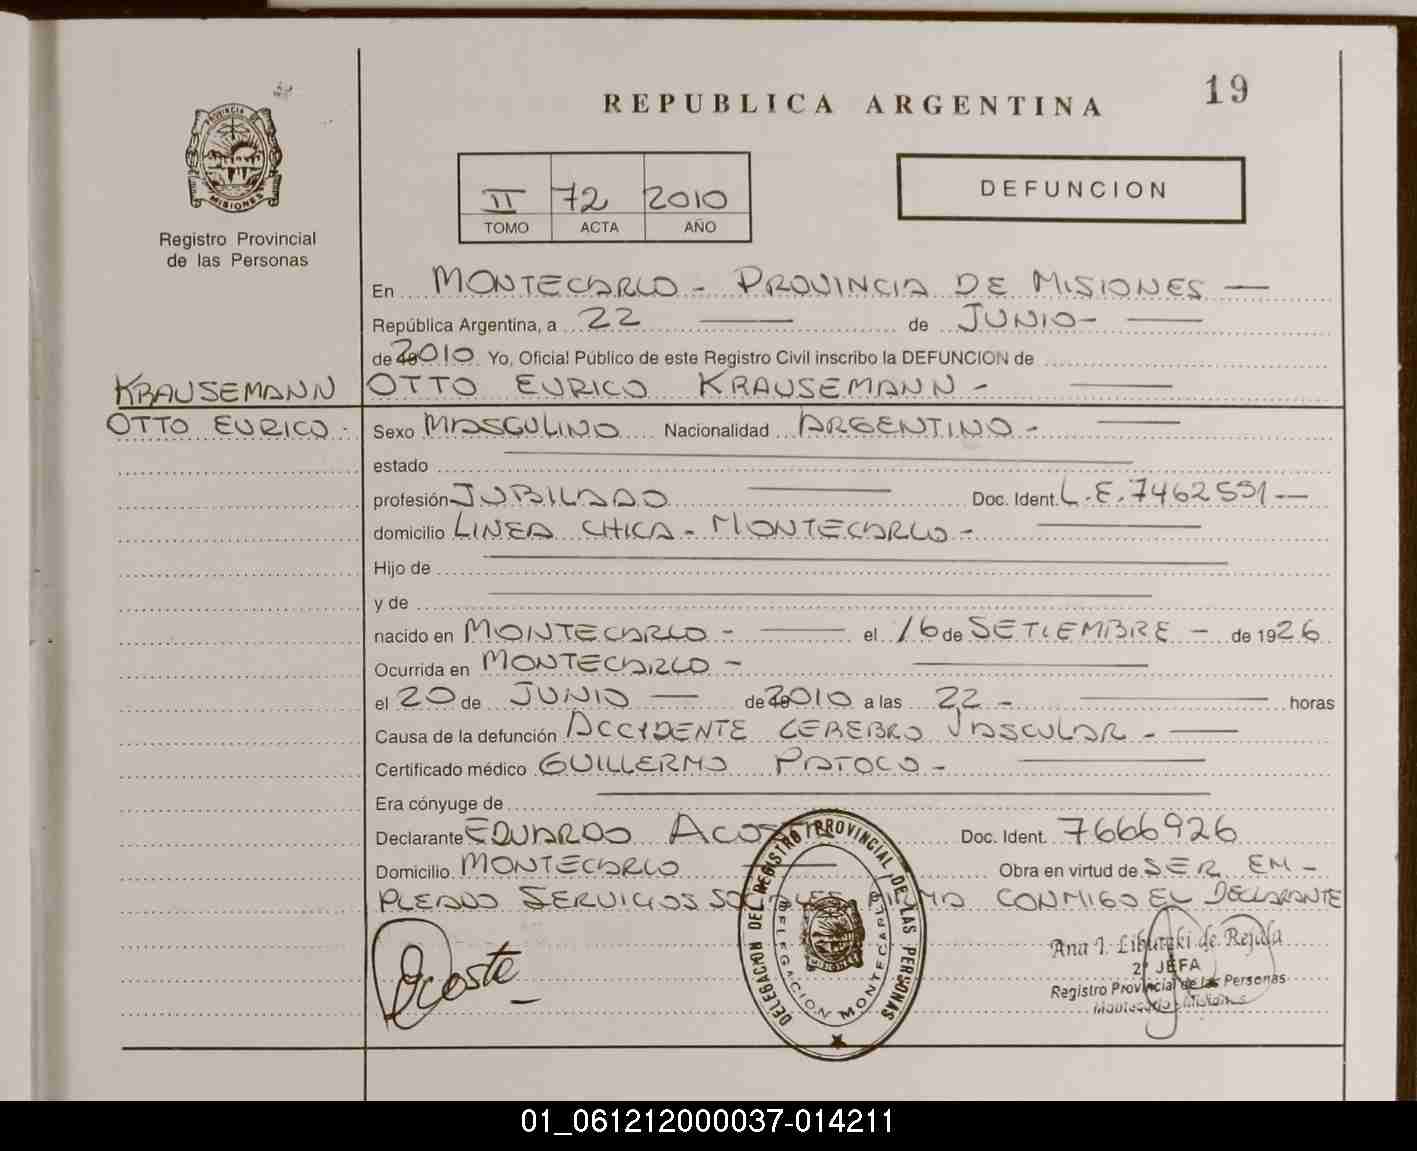 19
REPUBLICA ARGENTINA
PROVINCIA DE
MISIONES
Registro Provincial
de las Personas
II 72 2010
TOMO ACTA AÑO
DEFUNCION
En MONTECARLO - PROVINCIA DE MISIONES —
República Argentina, a 22 — de JUNIO - —
de 2010 Yo, Oficial Público de este Registro Civil inscribo la DEFUNCION de
KRAUSEMANN OTTO EURICO KRAUSEMANN - —
OTTO EURICO - Sexo MASCULINO Nacionalidad ARGENTINO - —
estado —
profesión JUBILADO — Doc. Ident. L.E. 7462591 —
domicilio LINEA CHICA - MONTECARLO - —
Hijo de —
y de —
nacido en MONTECARLO - — el 16 de SETIEMBRE - de 1926
Ocurrida en MONTECARLO - —
el 20 de JUNIO — de 2010 a las 22 - — horas
Causa de la defunción ACCIDENTE CEREBRO VASCULAR - —
Certificado médico GUILLERMO - —
Era cónyuge de —
Declarante EDUARDO ACOSTA Doc. Ident. 7666926
Domicilio MONTECARLO — Obra en virtud de SER EM-
PLEADO SERVICIOS SOCIALES FIRMA CONMIGO EL DECLARANTE
Acosta
DELEGACION DEL REGISTRO PROVINCIAL DE LAS PERSONAS
DELEGACION MONTECARLO
MISIONES
Ana I. de Rejala
2° JEFA
Registro Provincial de las Personas
Montecarlo - Misiones
01_061212000037-014211